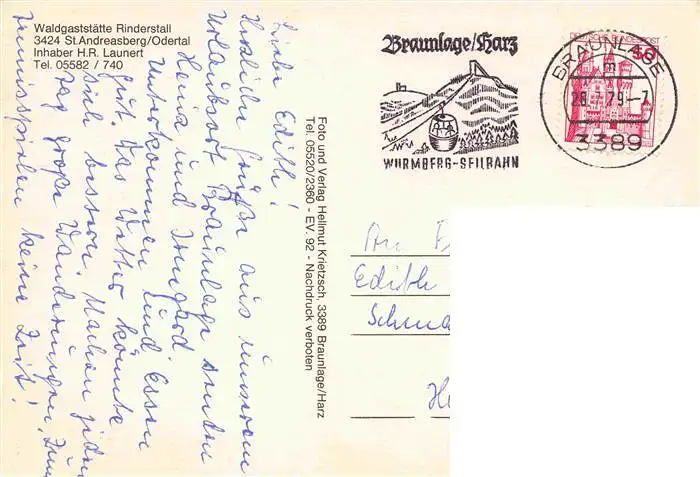 Waldgaststätte Rinderstall
3424 St.Andreasberg/Odertal
Inhaber H.R. Launert
Tel. 05582 / 740
Liebe Edith!
Herzliche Grüße aus unserem
Urlaubsort Braunlage senden
Heinz und Irmgard.
Unterkommen und Essen
gut. Das Wetter könnte
viel besser. Machen jeden
Tag große Wanderungen, zum
Tennisspielen keine Zeit!
Foto und Verlag Hellmut Krietzsch, 3389 Braunlage/Harz
Tel. 05520/2360 - EV. 92 - Nachdruck verboten
Braunlage/Harz
WURMBERG-SEILBAHN
DEUTSCHE BUNDESPOST
50
BRAUNLAGE
E
28. 79-7
3389
An
Edith